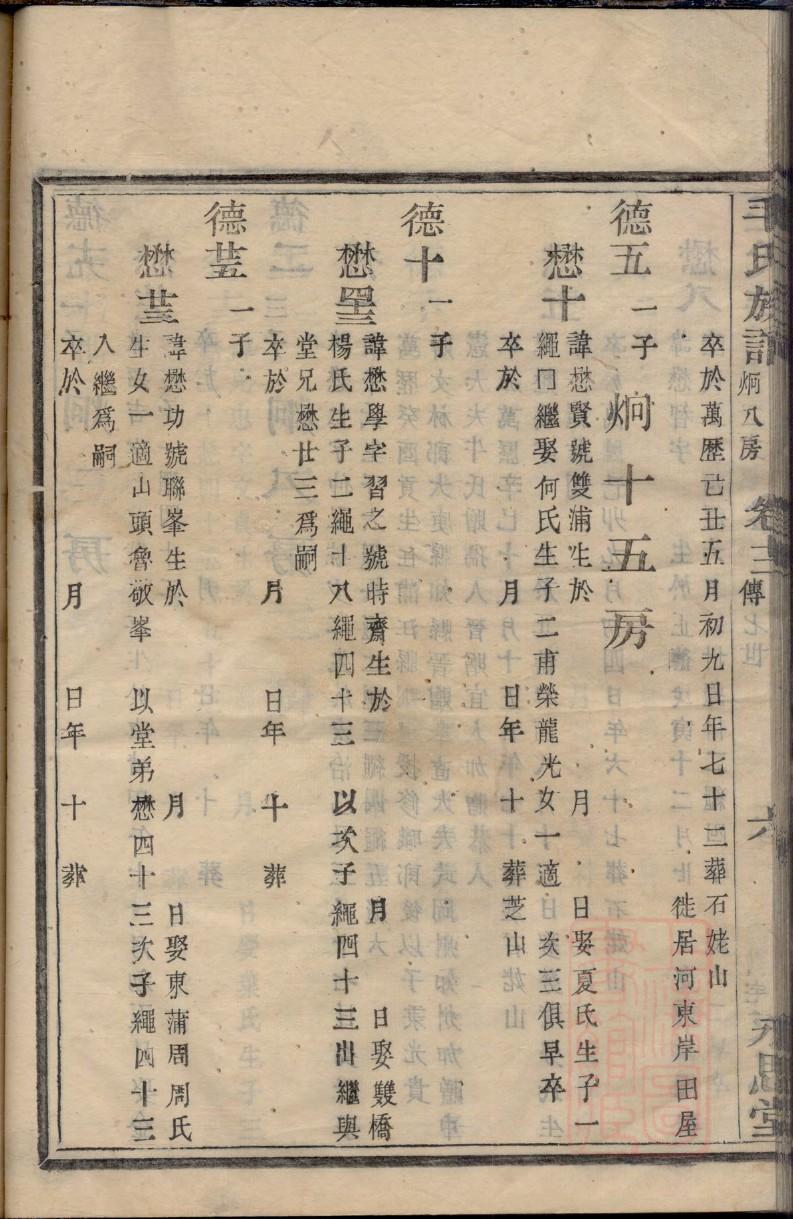 毛氏族譜 炯八房 卷十三 傳七世 六 永思堂
卒於萬歷己丑五月初九日年七十二葬石姥山
徙居河東岸田屋
德五 一子 炯十五房
懋十 諱懋賢號雙浦生於 月 日娶夏氏生子一
繩 繼娶何氏生子二甫榮龍光女十適 次三俱早卒
卒於 月 日年 十 葬芝山
德十 一子
懋 諱懋學字習之號時齋生於 月 日娶雙橋
楊氏生子二繩十八繩四十三 以次子繩四十三出繼與
堂兄懋廿三爲嗣
卒於 月 日年 十 葬
德 一子
懋廿三 諱懋功號聯峯生於 月 日娶東蒲周周氏
生女一適山頭魯敬峯 以堂弟懋四十三次子繩四十三
入繼爲嗣
卒於 月 日年 十 葬